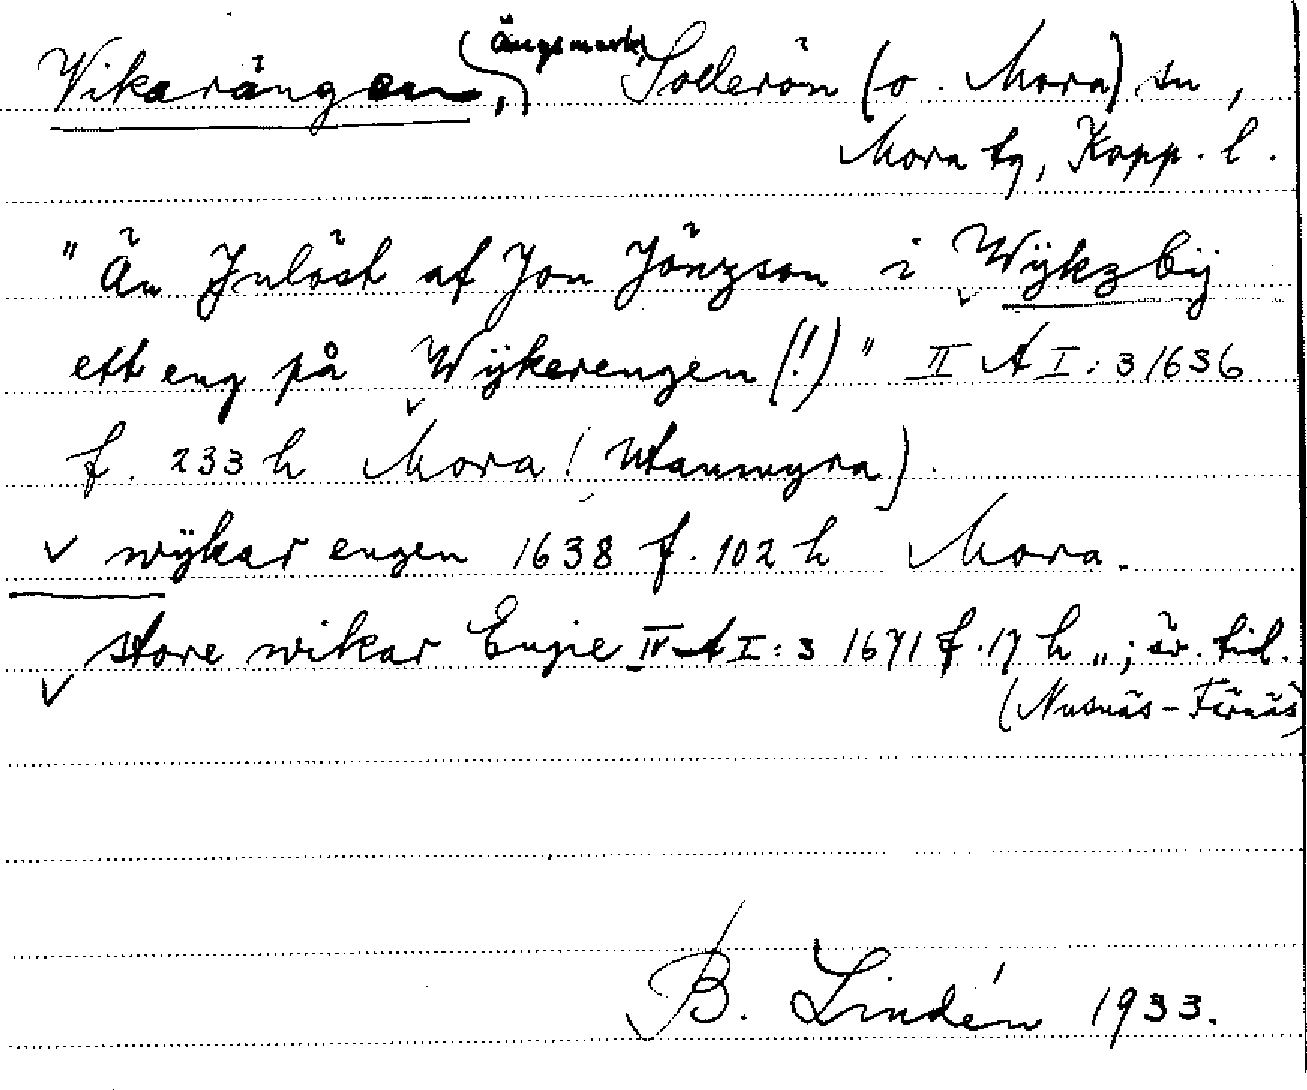 Vikarängen, (ängsmark) Sollerön (o. Mora) sn,
Mora tg, Kopp. l.
"Än Inlöst af Jon Jönzson i Wÿkzbÿ
ett eng på Wÿkerengen (!)" II A I: 3 1636
f. 233 h Mora (Utanmyra).
wÿkar engen 1638 f. 102 h Mora.
store wikar Engie IV A I: 3 1671 f. 17 h „; äv. tid.
(Nusnäs - Färnäs)
B. Lindén 1933.